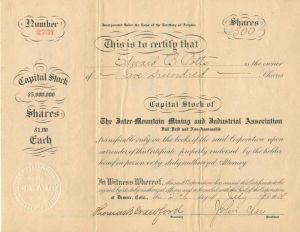 Incorporated Under the Laws of the Territory of Arizona
Number
2731
Shares
500
This is to certify that
Edward B. is the owner
of Five Hundred Shares
Capital Stock
$5,000,000
Shares
$1.00
Each
Capital Stock of
The Inter-Mountain Mining and Industrial Association
Full Paid and Non-Assessable
transferable only on the books of the said Corporation upon
surrender of this Certificate properly endorsed by the holder
hereof in person or by duly authorized Attorney
In Witness Whereof, the said Corporation has caused this Certificate to be
signed by its duly authorized officers and to be sealed with the Seal of the Corporation
at Denver, Colo., this day of July
Thomas Crawford
John
Secretary
President